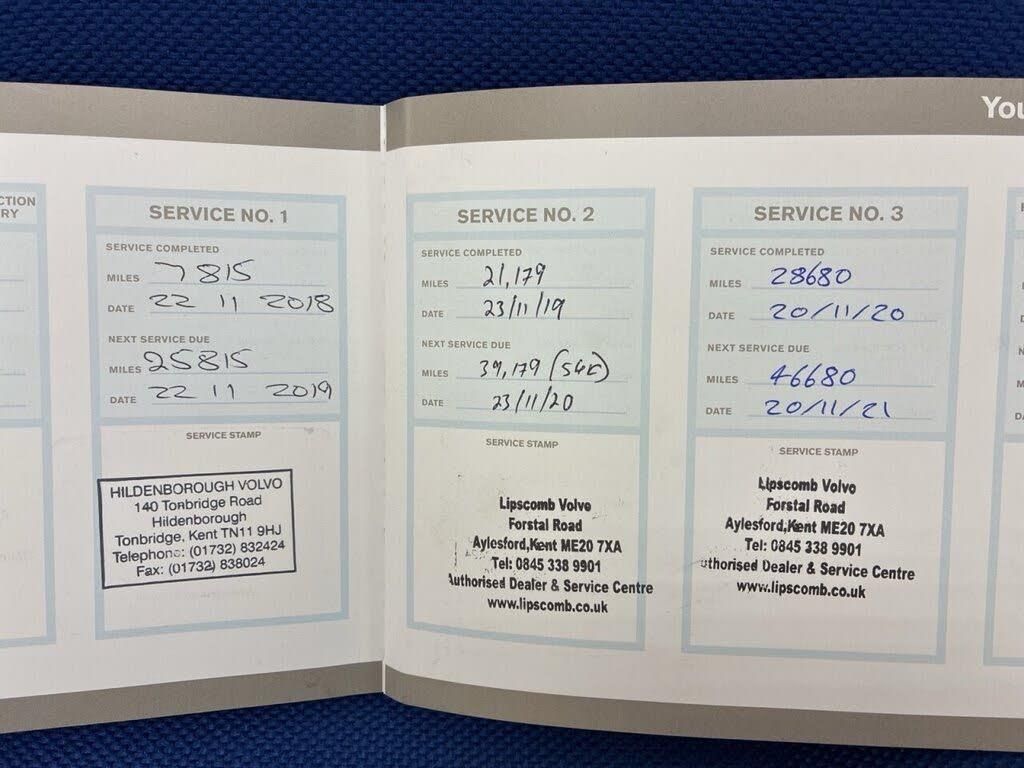 CTION
RY
You
SERVICE NO. 1
SERVICE COMPLETED
MILES 7815
DATE 22 11 2018
NEXT SERVICE DUE
MILES 25815
DATE 22 11 2019
SERVICE STAMP
HILDENBOROUGH VOLVO
140 Tonbridge Road
Hildenborough
Tonbridge, Kent TN11 9HJ
Telephone: (01732) 832424
Fax: (01732) 838024
SERVICE NO. 2
SERVICE COMPLETED
MILES 21,179
DATE 23/11/19
NEXT SERVICE DUE
MILES 39,179
DATE 23/11/20
SERVICE STAMP
Lipscomb Volvo
Forstal Road
Aylesford,Kent ME20 7XA
Tel: 0845 338 9901
Authorised Dealer & Service Centre
www.lipscomb.co.uk
SERVICE NO. 3
SERVICE COMPLETED
MILES 28680
DATE 20/11/20
NEXT SERVICE DUE
MILES 46680
DATE 20/11/21
SERVICE STAMP
Lipscomb Volvo
Forstal Road
Aylesford,Kent ME20 7XA
Tel: 0845 338 9901
uthorised Dealer & Service Centre
www.lipscomb.co.uk